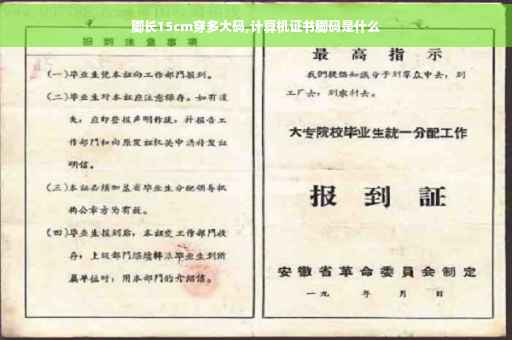 脚长15cm穿多大码,计算机证书脚码是什么
报到注意事项
(一)毕业生凭本证向工作部门报到。
(二)毕业生对本证应注意保存。如有遗
失,应即登报声明作废,并报告工
作部门和向原发证机关申请补发证
明信。
(三)本证必须加盖省毕业生分配领导机
构公章方为有效。
(四)毕业生报到后,本证交工作部门收
存;上级部门继续转派毕业生到所
属单位时,用本部门的介绍信。
最高指示
我们提倡知识分子到群众中去,到
工厂去,到农村去。
大专院校毕业生統一分配工作
报到証
安徽省革命委員会制定
一九 年 月 日